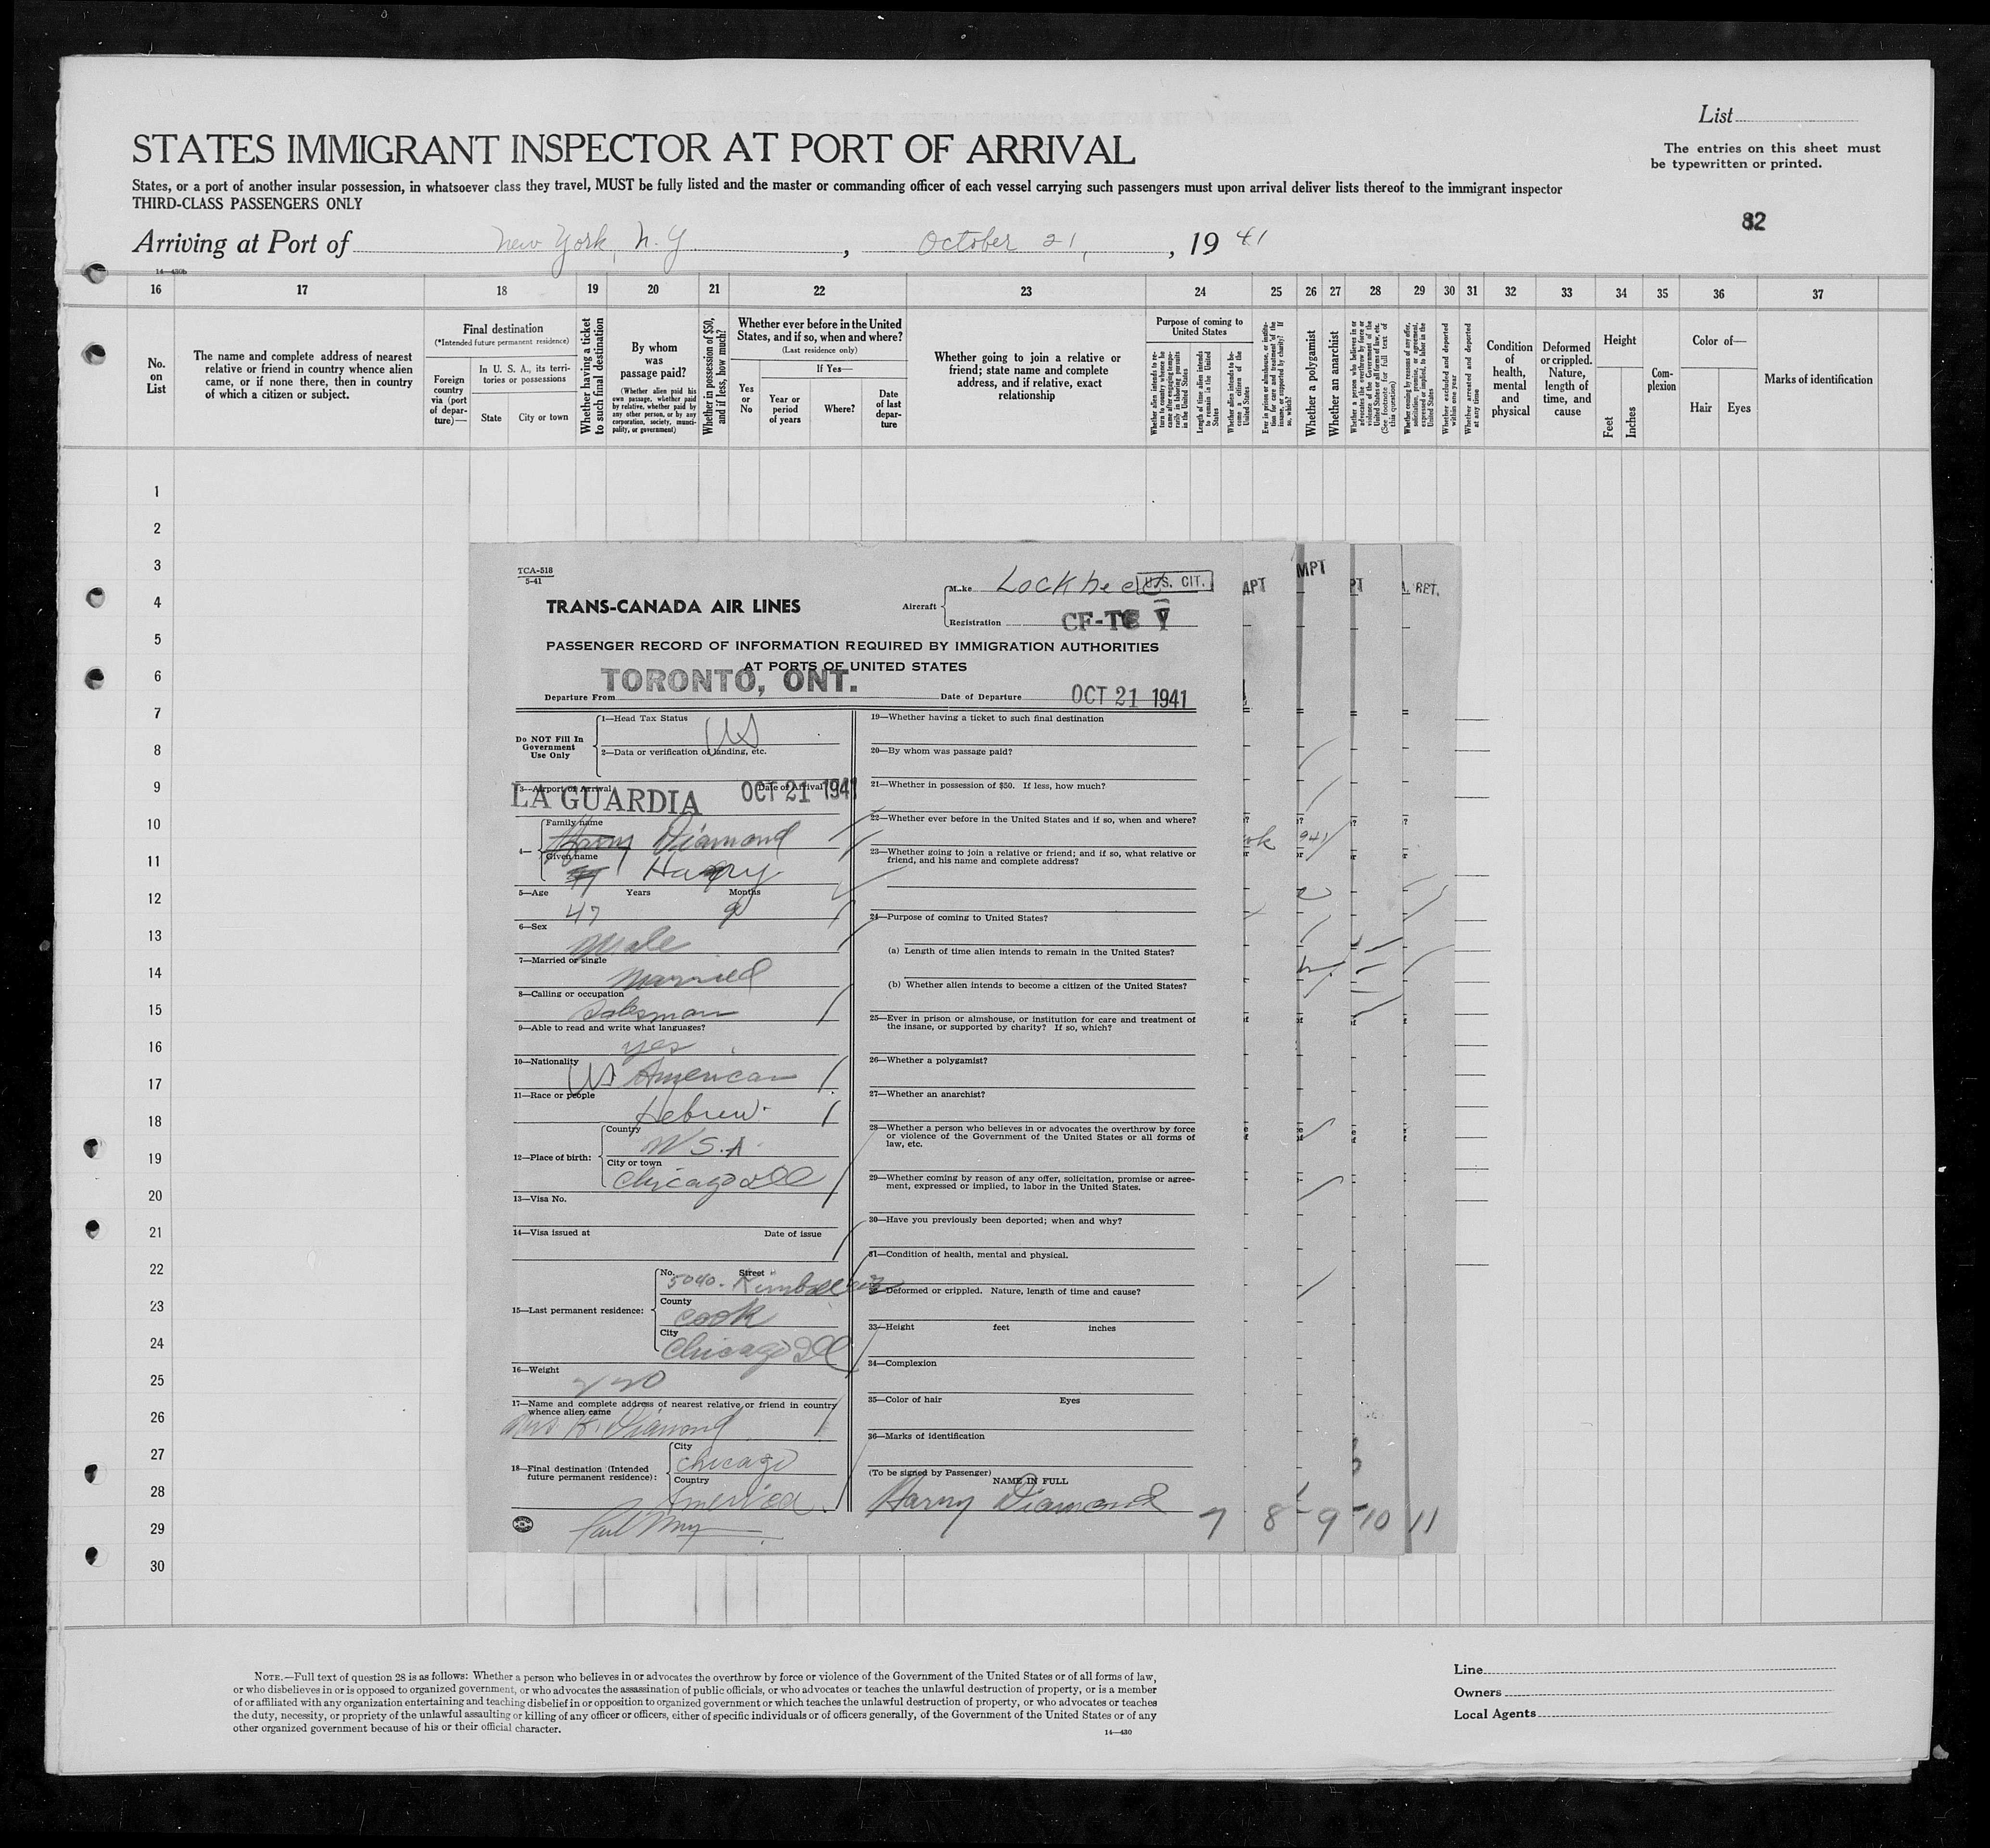 List
STATES IMMIGRANT INSPECTOR AT PORT OF ARRIVAL
The entries on this sheet must
be typewritten or printed.
States, or a port of another insular possession, in whatsoever class they travel, MUST be fully listed and the master or commanding officer of each vessel carrying such passengers must upon arrival deliver lists thereof to the immigrant inspector
THIRD-CLASS PASSENGERS ONLY
82
Arriving at Port of New York, N.Y , October 21, , 19 41
14—430b
16 17 18 19 20 21 22 23 24 25 26 27 28 29 30 31 32 33 34 35 36 37
No. on List
The name and complete address of nearest relative or friend in country whence alien came, or if none there, then in country of which a citizen or subject.
Final destination
(*Intended future permanent residence)
Foreign country via (port of departure)—
In U. S. A., its territories or possessions
State
City or town
Whether having a ticket to such final destination
By whom was passage paid?
(Whether alien paid his own passage, whether paid by relative, whether paid by any other person, or by any corporation, society, municipality, or government)
Whether in possession of $50, and if less, how much?
Whether ever before in the United States, and if so, when and where?
(Last residence only)
Yes or No
If Yes—
Year or period of years
Where?
Date of last departure
Whether going to join a relative or friend; state name and complete address, and if relative, exact relationship
Purpose of coming to United States
Length of time alien intends to remain in the United States
Whether alien intends to become a citizen of the United States
Whether a polygamist
Whether an anarchist
Whether excluded and deported within one year
Whether arrested and deported at any time
Condition of health, mental and physical
Deformed or crippled. Nature, length of time, and cause
Height
Feet
Inches
Complexion
Color of—
Hair
Eyes
Marks of identification
1
2
3
4
5
6
7
8
9
10
11
12
13
14
15
16
17
18
19
20
21
22
23
24
25
26
27
28
29
30
TCA-518
5-41
TRANS-CANADA AIR LINES
Aircraft
Make Lockheed
U.S. CIT.
Registration CF-TC Y
PASSENGER RECORD OF INFORMATION REQUIRED BY IMMIGRATION AUTHORITIES
AT PORTS OF UNITED STATES
Departure From TORONTO, ONT. Date of Departure OCT 21 1941
Do NOT Fill In
Government
Use Only
1—Head Tax Status
US
2—Data or verification of landing, etc.
3—Airport of Arrival Date of Arrival
LA GUARDIA OCT 21 1941
4—
Family name
Harry Diamond
Given name
Harry
5—Age Years Months
47 9
6—Sex
Male
7—Married or single
Married
8—Calling or occupation
Salesman
9—Able to read and write what languages?
yes
10—Nationality
US American
11—Race or people
Hebrew
12—Place of birth:
Country
U S.A
City or town
Chicago Ill
13—Visa No.
14—Visa issued at Date of issue
15—Last permanent residence:
No. Street
5040 Kimball
County
Cook
City
Chicago Ill
16—Weight
220
17—Name and complete address of nearest relative or friend in country
whence alien came
Mrs H. Diamond
18—Final destination (Intended
future permanent residence):
City
Chicago
Country
America
19—Whether having a ticket to such final destination
20—By whom was passage paid?
21—Whether in possession of $50. If less, how much?
22—Whether ever before in the United States and if so, when and where?
23—Whether going to join a relative or friend; and if so, what relative or
friend, and his name and complete address?
24—Purpose of coming to United States?
(a) Length of time alien intends to remain in the United States?
(b) Whether alien intends to become a citizen of the United States?
25—Ever in prison or almshouse, or institution for care and treatment of
the insane, or supported by charity? If so, which?
26—Whether a polygamist?
27—Whether an anarchist?
28—Whether a person who believes in or advocates the overthrow by force
or violence of the Government of the United States or all forms of
law, etc.
29—Whether coming by reason of any offer, solicitation, promise or agree-
ment, expressed or implied, to labor in the United States.
30—Have you previously been deported; when and why?
31—Condition of health, mental and physical.
32—Deformed or crippled. Nature, length of time and cause?
33—Height feet inches
34—Complexion
35—Color of hair Eyes
36—Marks of identification
(To be signed by Passenger)
NAME IN FULL
Harry Diamond
7 8 9 10 11
NOTE.—Full text of question 28 is as follows: Whether a person who believes in or advocates the overthrow by force or violence of the Government of the United States or of all forms of law,
or who disbelieves in or is opposed to organized government, or who advocates the assassination of public officials, or who advocates or teaches the unlawful destruction of property, or is a member
of or affiliated with any organization entertaining and teaching disbelief in or opposition to organized government or which teaches the unlawful destruction of property, or who advocates or teaches
the duty, necessity, or propriety of the unlawful assaulting or killing of any officer or officers, either of specific individuals or of officers generally, of the Government of the United States or of any
other organized government because of his or their official character.
14—430
Line
Owners
Local Agents